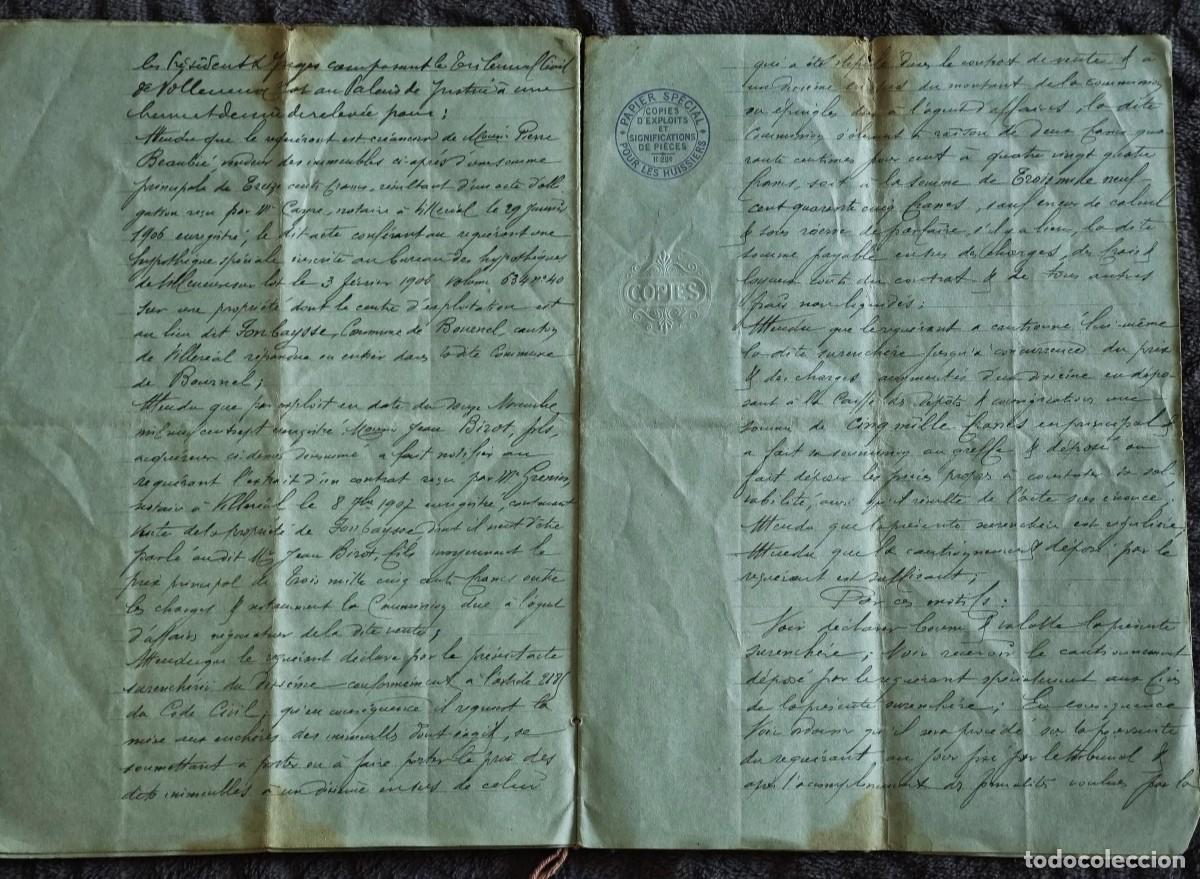 les Président & Juges composant le Tribunal Civil
de Villeneuve sur Lot au Palais de Justice à une
heure et demie de relevée pour:
Attendu que le requérant est créancier de Pierre
vendeur des immeubles ci-après d'une somme
principale de Treize cents francs, résultant d'une acte d'obli-
gation reçu par Me notaire à Villeréal le 29 janvier
1906 enregistré, le dit acte conférant au requérant une
hypothèque spéciale inscrite au bureau des hypothèques
de Villeneuve sur Lot le 3 février 1906 volume 634 n° 40
sur une propriété dont le centre d'exploitation est
au lieu dit Fonbaysse, Commune de Bournel, canton
de Villeréal répandue en entier dans la dite Commune
de Bournel;
Attendu que par exploit en date du douze Novembre
mil neuf cent sept enregistré Jean Birot, fils,
acquéreur ci dessus dénommé a fait notifier au
requérant l'extrait d'un contrat reçu par Me Grenier
notaire à Villeréal le 8 7bre 1907 enregistré, contenant
vente de la propriété de Fonbaysse dont il vient d'être
parlé au dit Jean Birot, fils moyennant le
prix principal de Trois mille cinq cents francs outre
les charges & notamment la Commission due à l'agent
d'affaires négociateur de la dite vente;
Attendu que le requérant déclare par le présent acte
surenchérir du dixième conformément à l'article 2185
du Code Civil, qu'en conséquence il requiert la
mise aux enchères des immeubles dont s'agit, se
soumettant à porter ou à faire porter le prix des
dits immeubles à un dixième en sus de celui
PAPIER SPÉCIAL
POUR LES HUISSIERS
COPIES
D'EXPLOITS
ET
SIGNIFICATIONS
DE PIÈCES
COPIES
qui a été stipulé dans le contrat de vente & à
un dixième en sus du montant de la commission
ou épingles due à l'agent d'affaires, la dite
Commission s'élevant à raison de deux francs qua-
rante centimes pour cent à quatre vingt quatre
francs, soit à la somme de Trois mille neuf
cent quarante cinq francs, sauf erreur de calcul
& sous réserve de parfaire, s'il y a lieu, la dite
somme payable en sus des charges, des frais &
loyaux coûts du contrat & de tous autres
frais non liquidés;
Attendu que le requérant a cautionné lui-même
la dite surenchère jusqu'à concurrence du prix
& des charges augmentés d'un dixième en dépo-
sant à la Caisse des dépôts & consignations une
somme de Cinq mille francs en principal &
a fait sa soumission au greffe & déposé ou
fait déposer les pièces propres à constater sa sol-
vabilité, ainsi qu'il résulte de l'acte sus énoncé;
Attendu que la présente surenchère est régulière,
Attendu que le cautionnement déposé par le
requérant est suffisant;
Par ces motifs:
Voir déclarer bonne & valable la présente
surenchère; Voir recevoir le cautionnement
déposé par le requérant spécialement aux fins
de la présente surenchère; En conséquence
Voir ordonner qu'il sera procédé sur la poursuite
du requérant au jour fixé par le tribunal &
après l'accomplissement des formalités voulues par la
todocoleccion